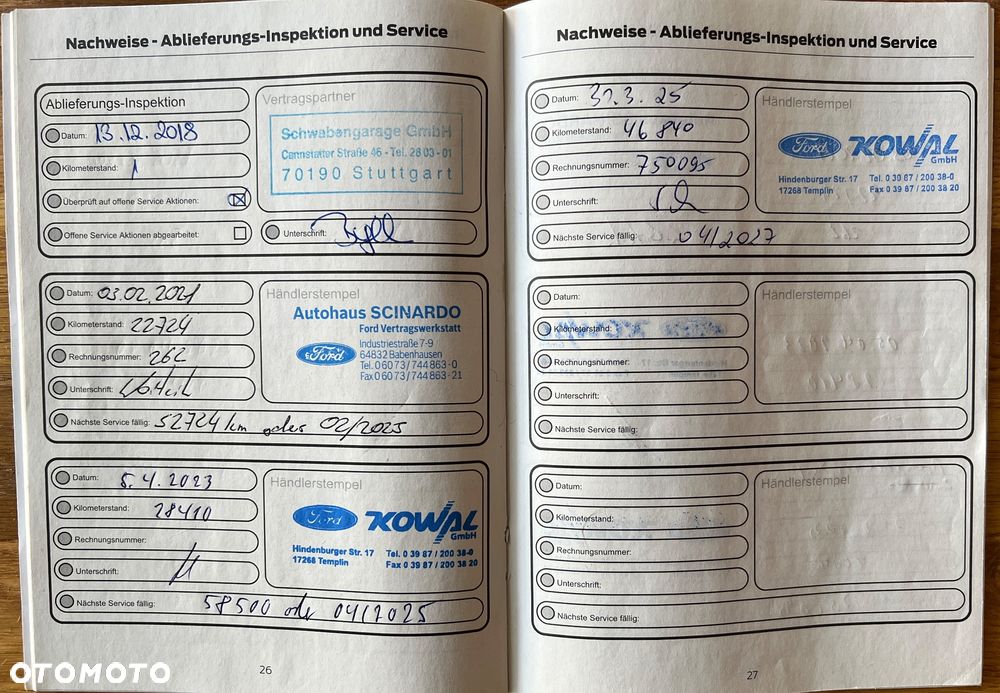 Nachweise - Ablieferungs-Inspektion und Service
Ablieferungs-Inspektion
Datum: 13.12.2018
Kilometerstand: 1
Überprüft auf offene Service Aktionen:
Offene Service Aktionen abgearbeitet:
Vertragspartner
Schwabengarage GmbH
Cannstatter Straße 46 - Tel. 28 03 - 01
70190 Stuttgart
Unterschrift:
Datum: 03.02.2021
Kilometerstand: 22724
Rechnungsnummer: 262
Unterschrift:
Nächste Service fällig: 52724 km oder 02/2025
Händlerstempel
Autohaus SCINARDO
Ford Vertragswerkstatt
Ford
Industriestraße 7-9
64832 Babenhausen
Tel. 0 60 73 / 744 863 - 0
Fax 0 60 73 / 744 863 - 21
Datum: 5.4.2023
Kilometerstand: 28410
Rechnungsnummer:
Unterschrift:
Nächste Service fällig: 58500 oder 04/2025
Händlerstempel
Ford KOWAL
GmbH
Hindenburger Str. 17 Tel. 0 39 87 / 200 38-0
17268 Templin Fax 0 39 87 / 200 38 20
26
Nachweise - Ablieferungs-Inspektion und Service
Datum: 31.3.25
Kilometerstand: 46 840
Rechnungsnummer: 750095
Unterschrift:
Nächste Service fällig: 04/2027
Händlerstempel
Ford KOWAL
GmbH
Hindenburger Str. 17 Tel. 0 39 87 / 200 38-0
17268 Templin Fax 0 39 87 / 200 38 20
Datum:
Kilometerstand:
Rechnungsnummer:
Unterschrift:
Nächste Service fällig:
Händlerstempel
Datum:
Kilometerstand:
Rechnungsnummer:
Unterschrift:
Nächste Service fällig:
Händlerstempel
27
OTOMOTO